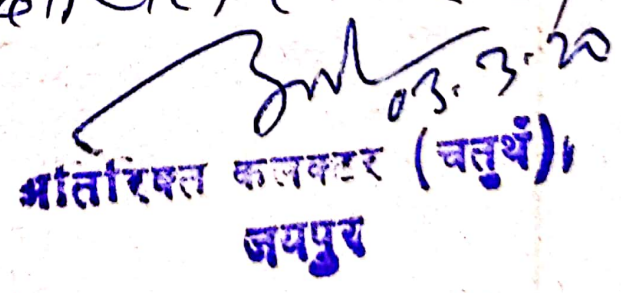 03.3.20
अतिरिक्त कलक्टर (चतुर्थ)।
जयपुर